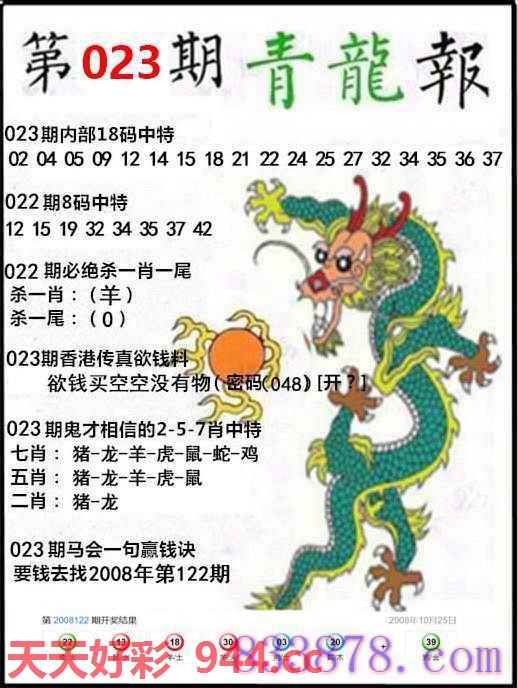 第023期青龍報
023期内部18码中特
02 04 05 09 12 14 15 18 21 22 24 25 27 32 34 35 36 37
022期8码中特
12 15 19 32 34 35 37 42
022期必绝杀一肖一尾
杀一肖：（羊）
杀一尾：（0）
023期香港传真欲钱料
欲钱买空空没有物(密码(048)[开?]
023期鬼才相信的2-5-7肖中特
七肖：猪-龙-羊-虎-鼠-蛇-鸡
五肖：猪-龙-羊-虎-鼠
二肖：猪-龙
023期马会一句赢钱诀
要钱去找2008年第122期
第 2008122 期开奖结果 2008年10月25日
22 13 18 30 03 20 + 39
天天好彩 944.cc
833878.com